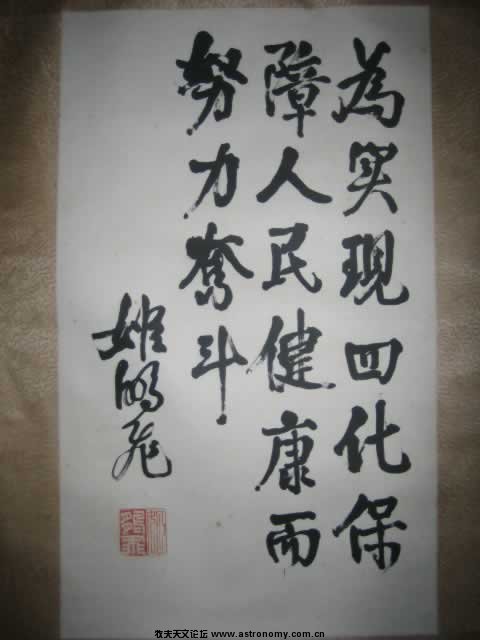 為实现四化保
障人民健康而
努力奮斗
姬鹏飞
牧夫天文论坛 www.astronomy.com.cn